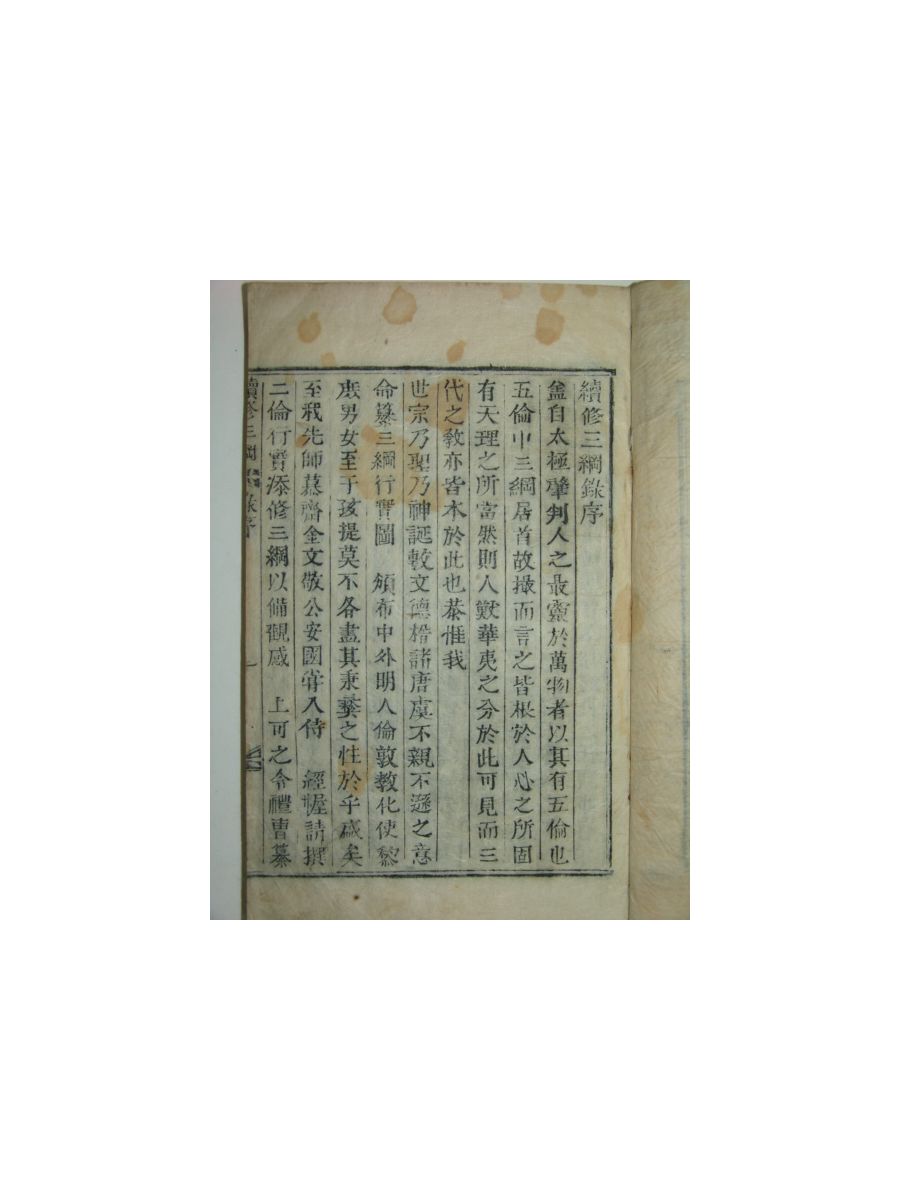 續修三綱錄序
盖自太極肇判人之最靈於萬物者以其有五倫也
五倫中三綱居首故撮而言之皆根於人心之所固
有天理之所當然則人獸華夷之分於此可見而三
代之敎亦皆本於此也恭惟我
世宗乃聖乃神誕敷文德稽諸唐虞不親不遜之意
命纂三綱行實圖 頒布中外明人倫敦敎化使黎
庶男女至于孩提莫不各盡其秉彝之性於乎盛矣
至我先師慕齋金文敬公安國嘗入侍 經幄請撰
二倫行實添修三綱以備觀感 上可之令禮曹纂
續修三綱錄序